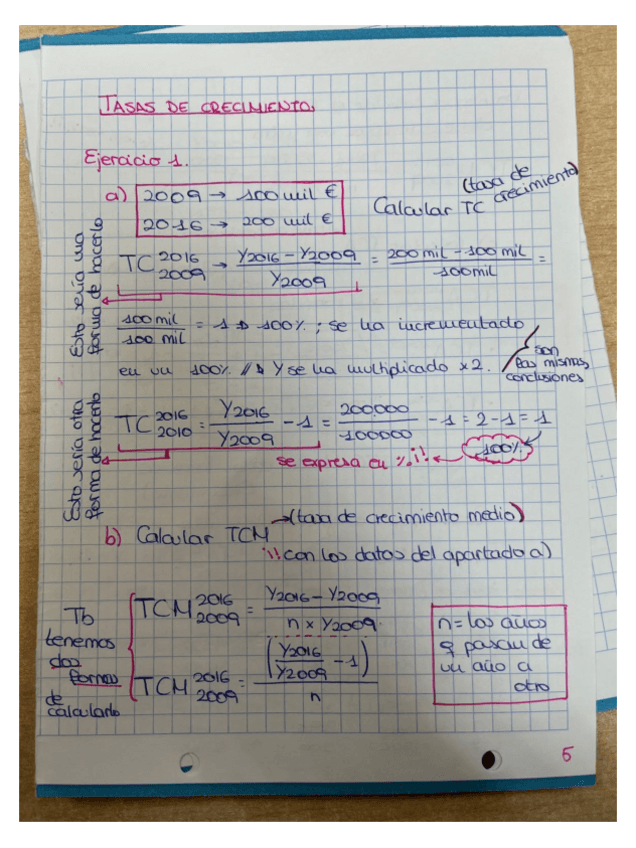 TASAS DE CRECIMIENTO.
Ejercicio 1.
a) 2009 → 100 mil €
2016 → 200 mil €
Calcular TC (tasa de crecimiento)
Esto sería una forma de hacerlo
TC 2016 2009 → Y2016 - Y2009 / Y2009 = 200 mil - 100 mil / 100 mil =
100 mil / 100 mil = 1 → 100%; se ha incrementado
en un 100% // → Y se ha multiplicado x2.
son las mismas conclusiones
Esto sería otra forma de hacerlo
TC 2016 2010 = Y2016 / Y2009 - 1 = 200.000 / 100000 - 1 = 2 - 1 = 1
100%
se expresa en %¡!!
→ (tasa de crecimiento medio)
b) Calcular TCM
¡!! con los datos del apartado a)
Tb tenemos dos formas de calcularlo
TCM 2016 2009 = Y2016 - Y2009 / n x Y2009
TCM 2016 2009 = (Y2016 / Y2009 - 1) / n
n = los años
q pasan de
un año a
otro
5